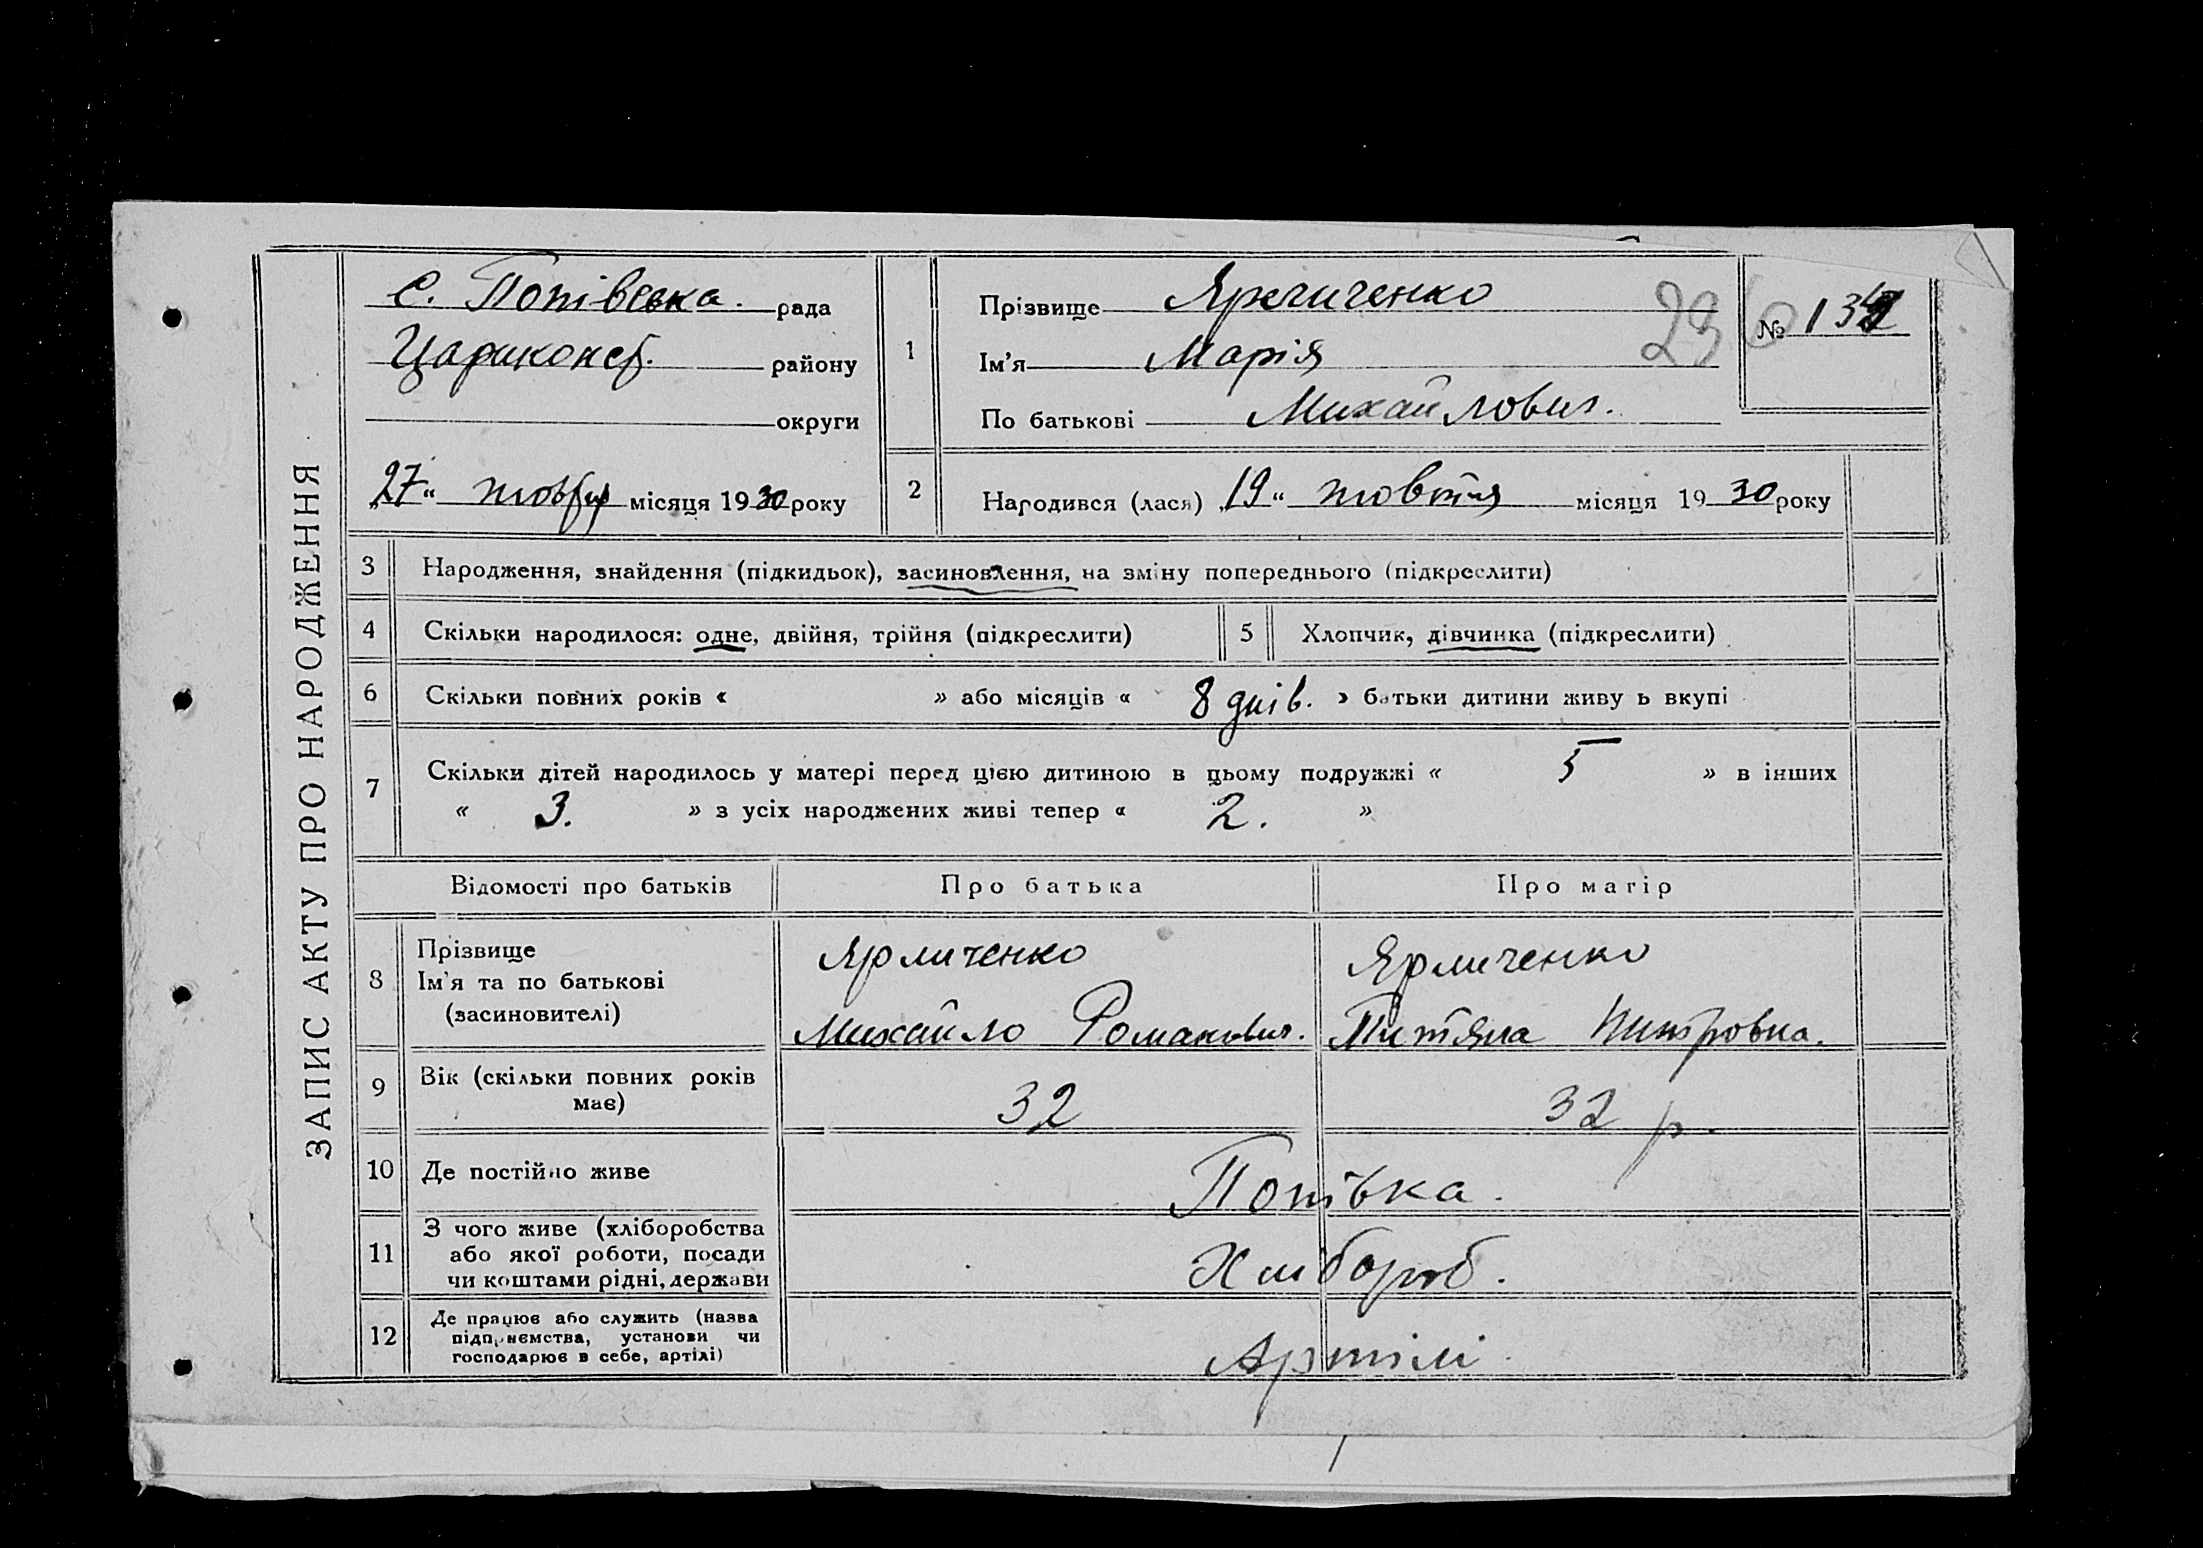 ЗАПИС АКТУ ПРО НАРОДЖЕННЯ
с. Попівська. рада
Цариконст. району
округи
„27“ жовтня місяця 1930 року
1
Прізвище Яреличенко
Ім'я Марія
По батькові Михайлович.
№ 134
290
2
Народився (лася) „19“ жовтня місяця 1930 року
3 Народження, знайдення (підкидьок), засиновлення, на зміну попереднього (підкреслити)
4 Скільки народилося: одне, двійня, трійня (підкреслити) 5 Хлопчик, дівчинка (підкреслити)
6 Скільки повних років « » або місяців « 8 днів. » батьки дитини живуть вкупі
7 Скільки дітей народилось у матері перед цією дитиною в цьому подружжі « 5 » в інших
« 3. » з усіх народжених живі тепер « 2. »
Відомості про батьків Про батька Про матір
8 Прізвище
Ім'я та по батькові
(засиновителі)
Ярличенко
Михайло Романович.
Ярличенко
Титяна Питровна.
9 Вік (скільки повних років
має)
32 32 р.
10 Де постійно живе Попівка.
11 З чого живе (хліборобства
або якої роботи, посади
чи коштами рідні, держави
Хлібороб.
12 Де працює або служить (назва
підприємства, установи чи
господарює в себе, артілі)
Артілі.